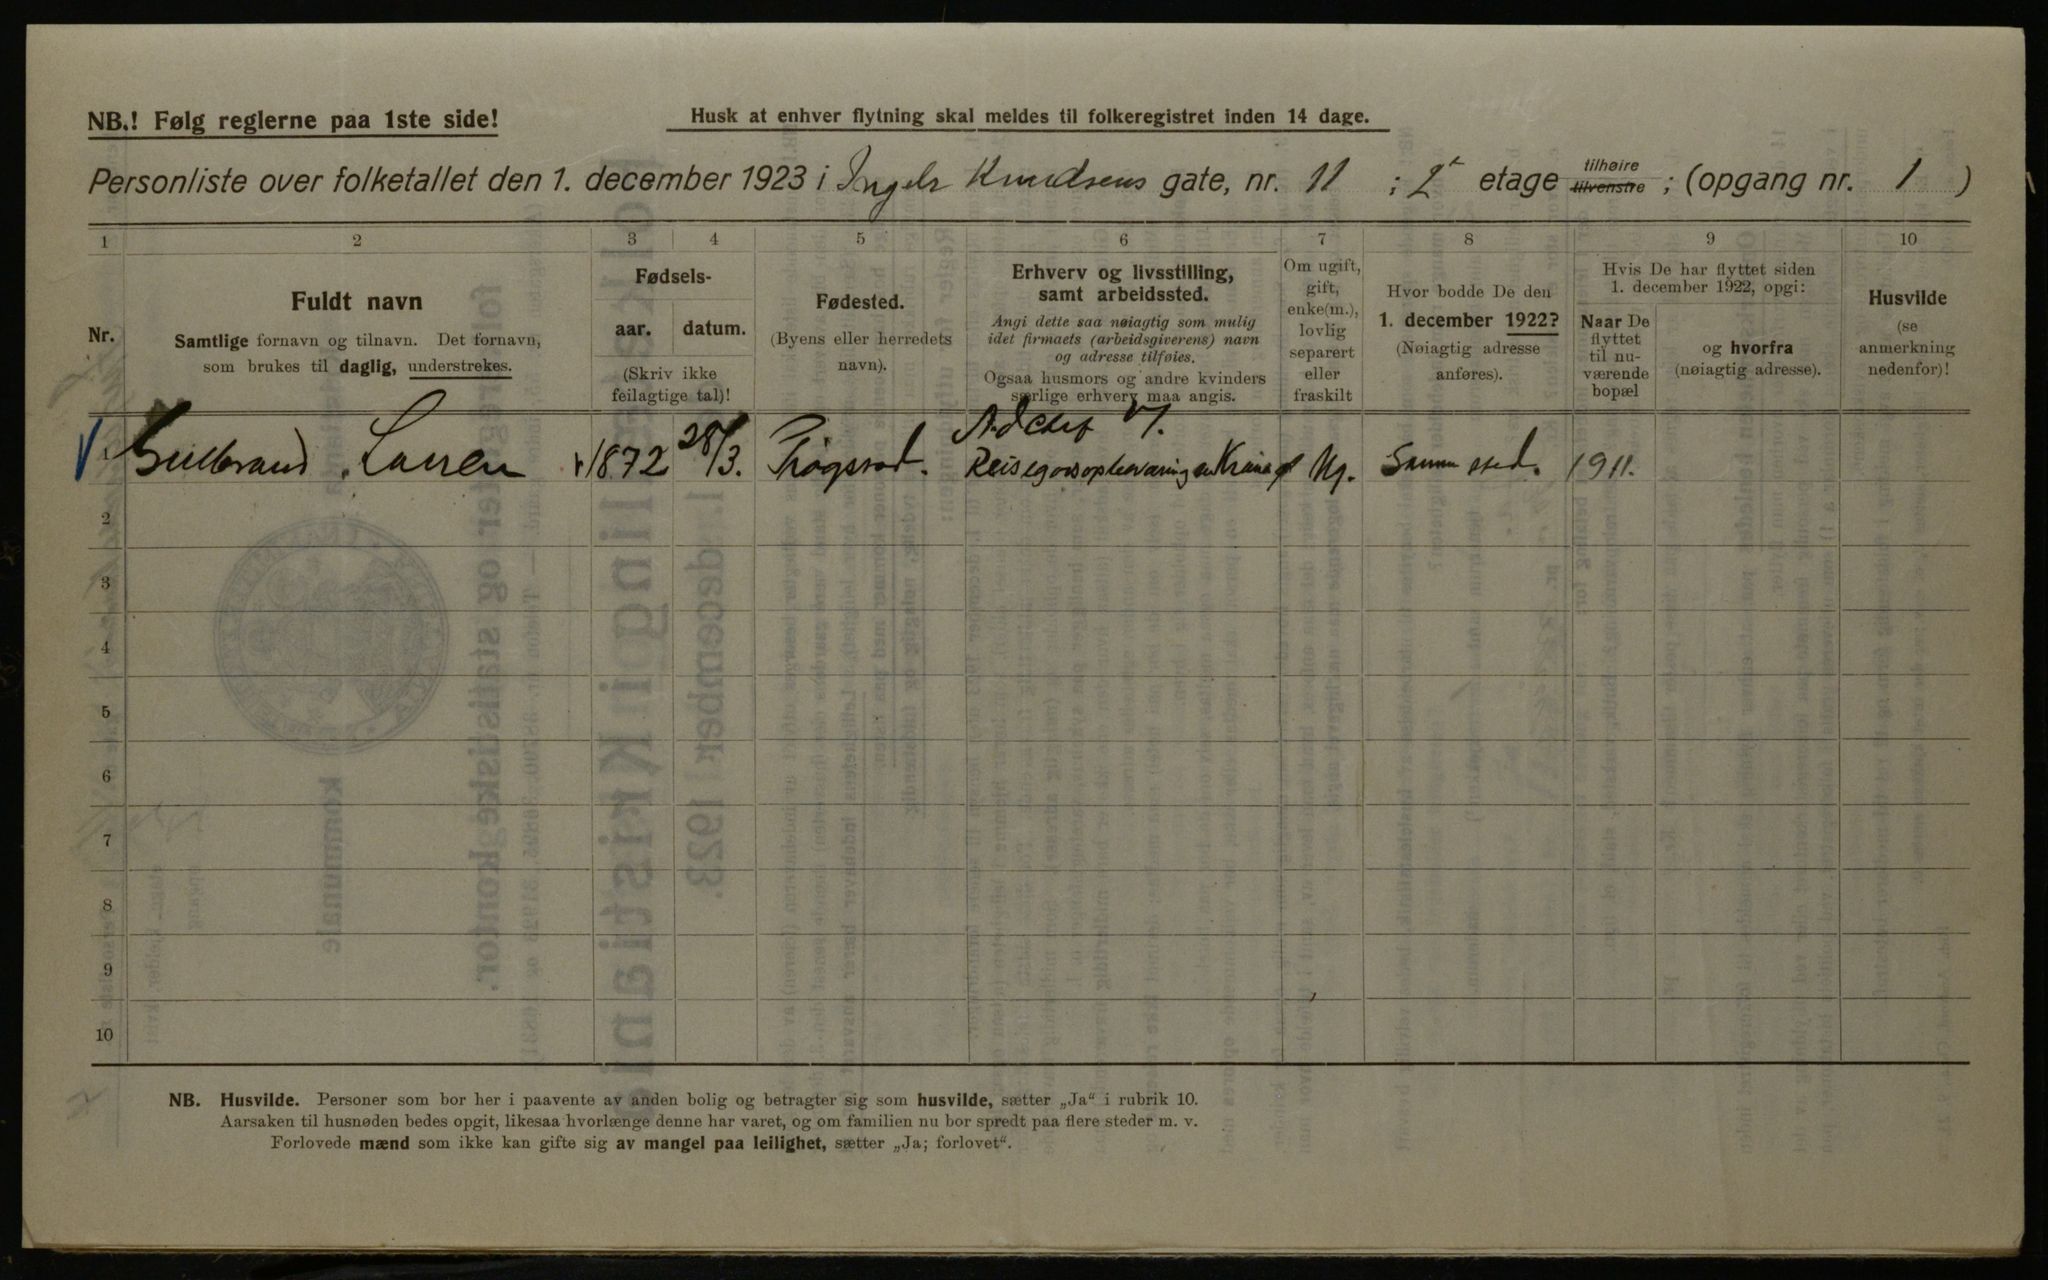 NB.! Følg reglerne paa 1ste side!
Husk at enhver flytning skal meldes til folkeregistret inden 14 dage.
Personliste over folketallet den 1. december 1923 i Ingels Knudsens gate, nr. 11 ; 2 etage tilhøire tilvenstre ; (opgang nr. 1 )
1 2 3 4 5 6 7 8 9 10
Nr.
Fuldt navn
Samtlige fornavn og tilnavn. Det fornavn,
som brukes til daglig, understrekes.
Fødsels-
aar. datum.
(Skriv ikke
feilagtige tal)!
Fødested.
(Byens eller herredets
navn).
Erhverv og livsstilling,
samt arbeidssted.
Angi dette saa nøiagtig som mulig
idet firmaets (arbeidsgiverens) navn
og adresse tilføies.
Ogsaa husmors og andre kvinders
særlige erhverv maa angis.
Om ugift,
gift,
enke(m.),
lovlig
separert
eller
fraskilt
Hvor bodde De den
1. december 1922?
(Nøiagtig adresse
anføres).
Hvis De har flyttet siden
1. december 1922, opgi:
Naar De
flyttet
til nu-
værende
bopæl
og hvorfra
(nøiagtig adresse).
Husvilde
(se
anmerkning
nedenfor)!
Gulbrand Larsen 1872 28/3. Trøgstad. Ug. Samme sted. 1911.
2
3
4
5
6
7
8
9
10
NB. Husvilde. Personer som bor her i paavente av anden bolig og betragter sig som husvilde, sætter „Ja“ i rubrik 10.
Aarsaken til husnøden bedes opgit, likesaa hvorlænge denne har varet, og om familien nu bor spredt paa flere steder m. v.
Forlovede mænd som ikke kan gifte sig av mangel paa leilighet, sætter „Ja; forlovet“.